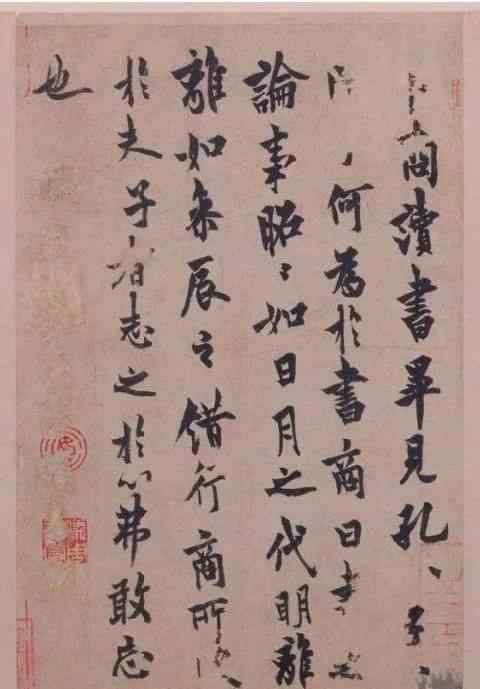 讀書畢見孔〻子〻
何為於書商曰書
論事昭〻如日月之代明離
離如參辰之錯行商所受
於夫子者志之於心弗敢忘
也